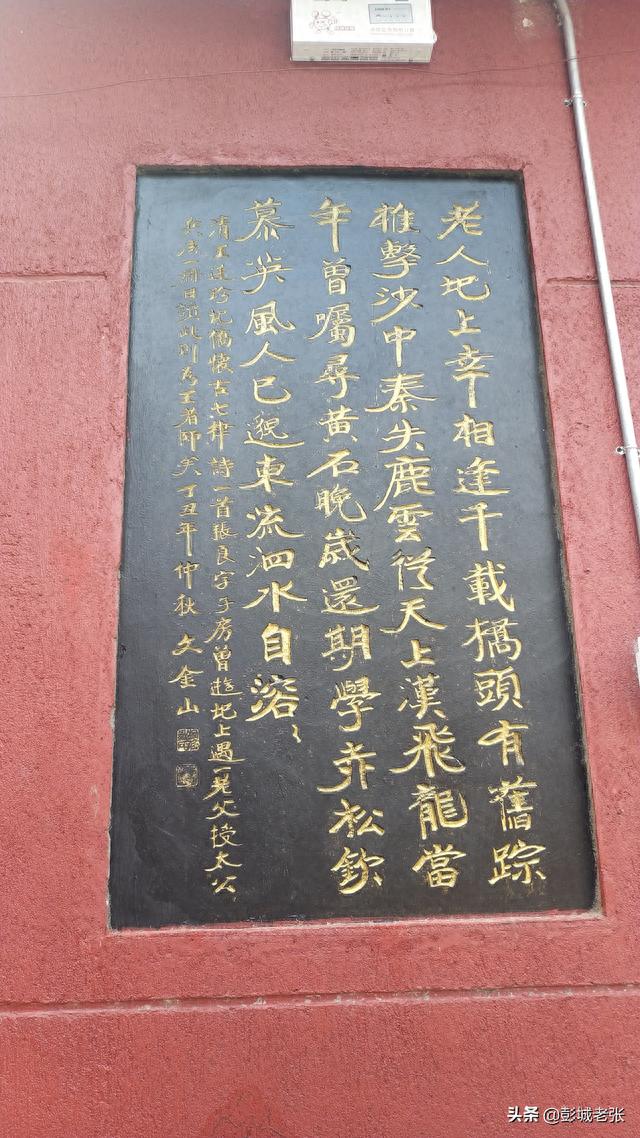 老人圯上幸相逢千載橋頭有舊踪
椎擊沙中秦失鹿雲從天上漢飛龍當
年曾囑尋黃石晚歲還期學赤松欽
慕英風人已邈東流泗水自溶〻
清王連珍圯橋懷古七律詩一首張良字子房曾遊圯上遇一老父授太公
兵法一冊曰讀此則為王者師矣丁丑年仲秋文金山
头条 @彭城老张